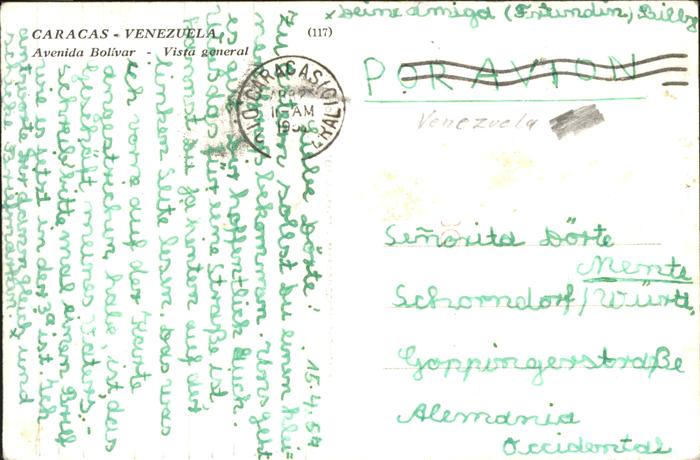 CARACAS - VENEZUELA
(117)
Avenida Bolívar - Vista general
15.4.54
Liebe Dörte!
Zu Ostern sollst du einen klei=
nen Gruss bekommen. Uns geht
es gut, hoffentlich Euch
auch. Das für eine Straße ist
kannst du ja hinten auf der
linken Seite lesen. Das was
ich vorne auf der Karte
angestrichen habe, ist das
Geschäft meines Vaters.
Schreib bitte mal einen Brief
wie es jetzt in der 3 ist. Ich
antworte dir dann gleich und
x deine amiga (Freundin) Silby
CARACAS
AM
POR AVION
Venezuela
Señorita Dörte
Mente
Schorndorf/Württ.
Goppingerstraße
Alemania
Occidental